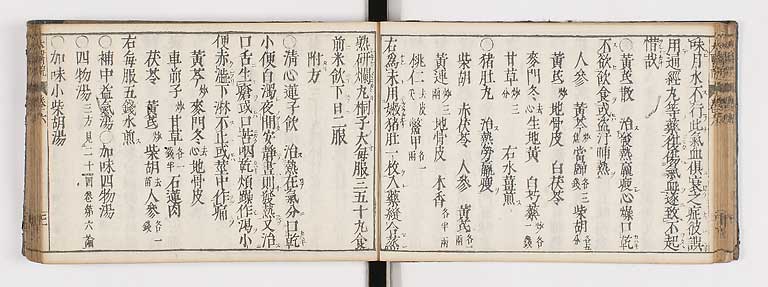 味月水不行此氣血俱衰之症彼誤
用通經丸等藥往傷氣血遂致不起
惜哉
○黃芪散　治發熱羸瘦心燥口乾
不欲飲食或盜汗晡熱
人參　黃芩炒　當歸各一錢　三柴胡
黃芪炒　地骨皮　白茯苓
麥門冬去心　生地黃　白芍藥炒各一錢
甘草炒三分　右水薑煎
○豬肚丸　治熱勞羸瘦
柴胡　赤茯苓　人參　黃芪各一兩
黃連三兩　地骨皮　木香各半兩
桃仁去皮　鱉甲各一兩
右為末用嫩豬肚一枚入藥縫合蒸
熟研爛丸桐子大每服三五十丸食
前米飲下日二服
附方
○清心蓮子飲　治熱在氣分口乾
小便白濁夜間安靜晝則發熱又治
口舌生瘡或口苦咽乾煩躁作渴小
便赤澁下淋不止或莖中作痛
黃芩炒　麥門冬去心　地骨皮
車前子炒　甘草各一錢半　石蓮肉
茯苓　黃芪　柴胡　人參各一錢
右每服五錢水煎
○補中益氣湯　○加味四物湯
○四物湯三方見二十四卷第六
○加味小柴胡湯